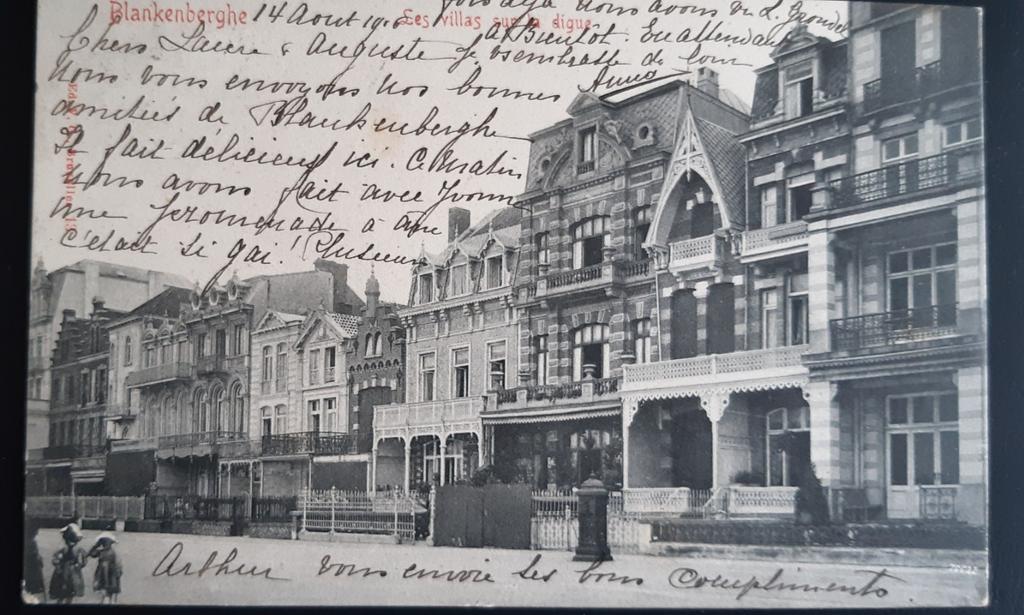 Blankenberghe 14 Août 19 Les villas sur la digue
Chers Laure & Auguste
Nous vous envoyons nos bonnes
amitiés de Blankenberghe
Il fait délicieux ici. Ce Matin
nous avons fait avec Yvonne
une promenade à âne
c'était si gai! Plusieurs
fois déjà nous avons vu L.
A Bientôt. En attendant
Je vs embrasse de tout
Anna
Arthur vous envoie ses bons compliments